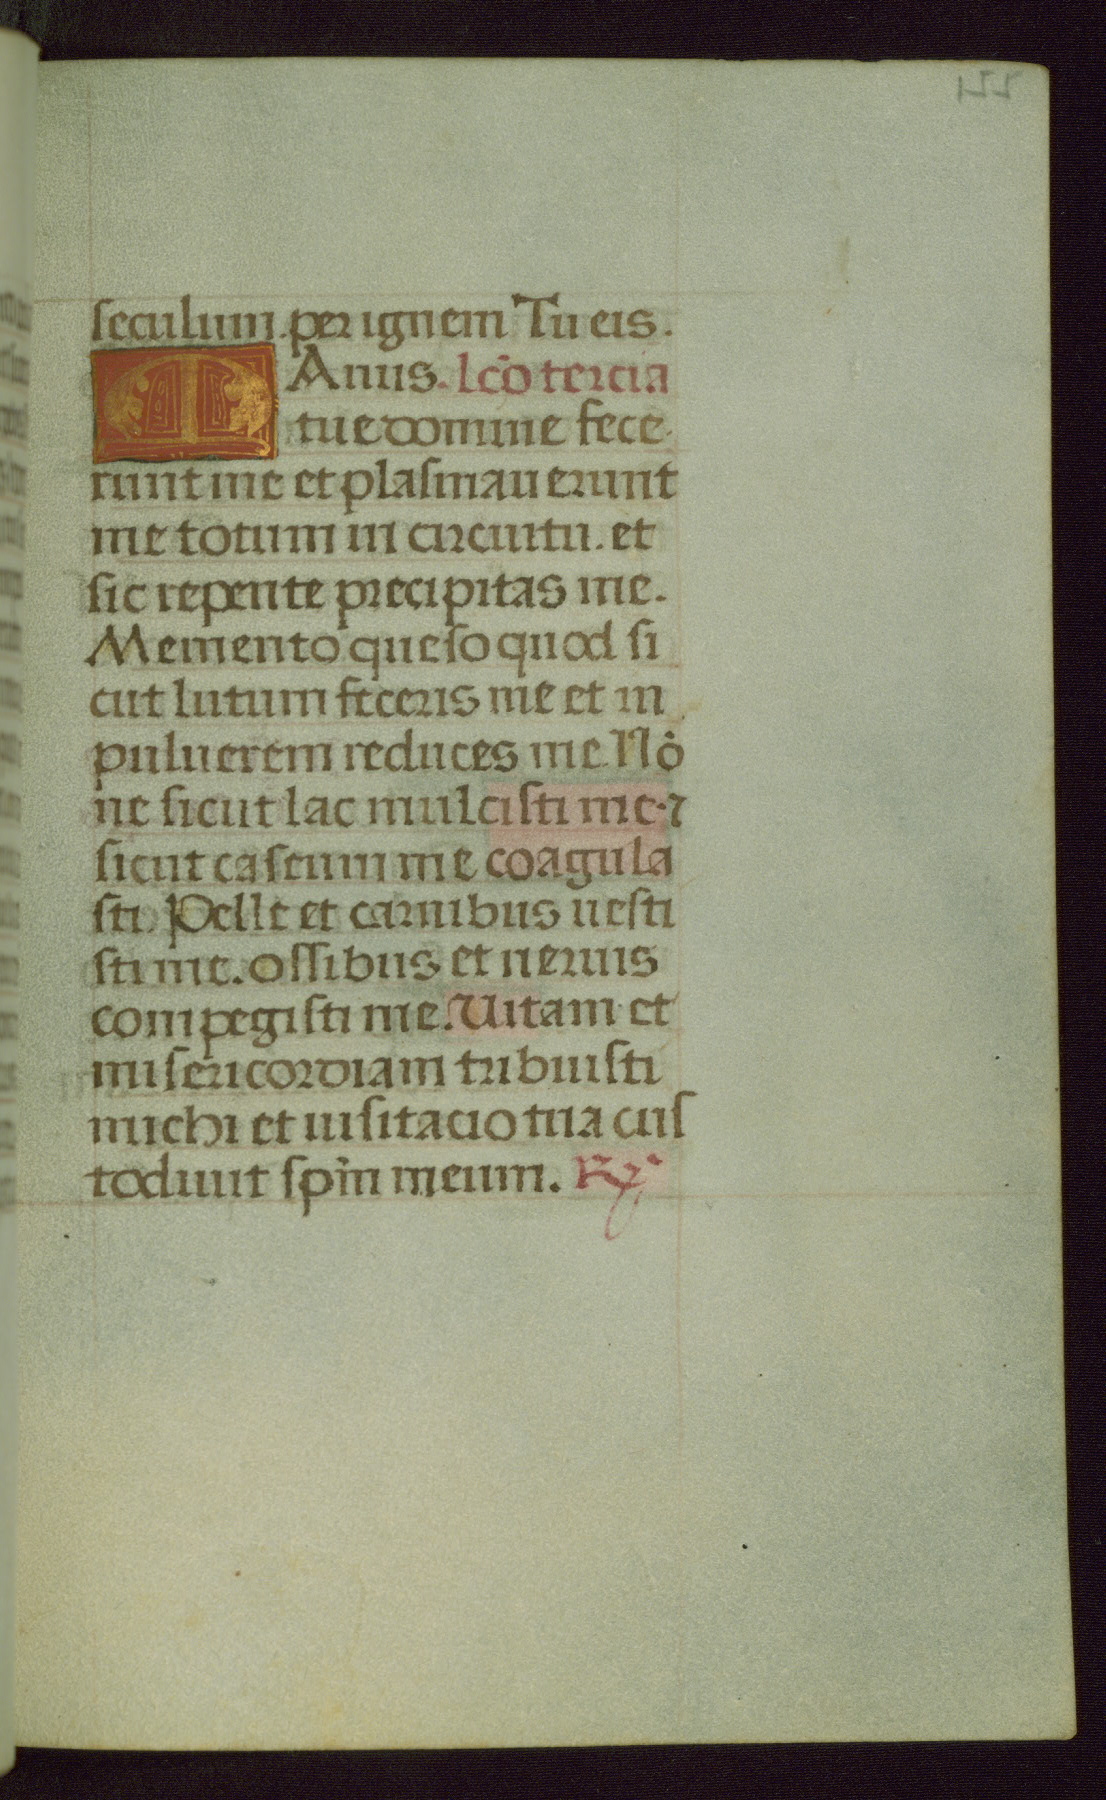 seculum. per ignem Tu eis.
MAnus. lc̃o tercia
tue domine fece
runt me et plasmauerunt
me totum in circuitu. et
sic repente precipitas me.
Memento queso quod si
cut lutum feceris me et in
puluerem reduces me. Nõ
ne sicut lac mulcisti me. ⁊
sicut caseum me coagula
sti. Pelle et carnibus uesti
sti me. ossibus et neruis
compegisti me. Uitam et
misericordiam tribuisti
michi et uisitacio tua cus
todiuit spm̃ meum. R̃.